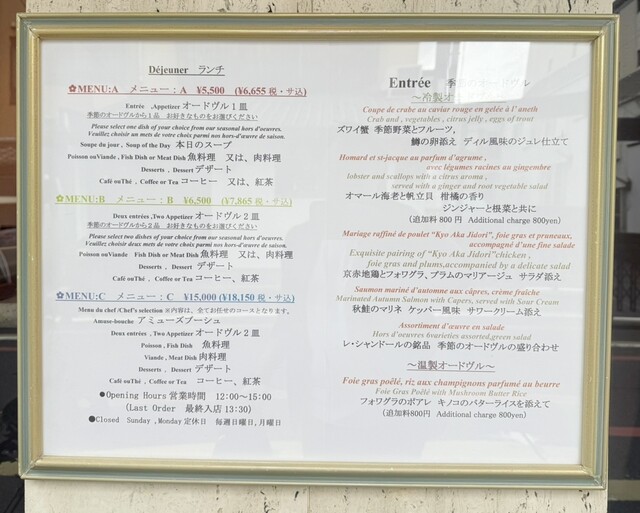 Déjeuner ランチ
✿MENU:A メニュー：A ¥5,500 (¥6,655 税・サ込)
Entrée , Appetizer オードヴル１皿
季節のオードヴルから１品 お好きなものをお選びください
Please select one dish of your choice from our seasonal hors d'oeuvres.
Veuillez choisir un mets de votre choix parmi nos hors-d'œuvre de saison.
Soupe du jour , Soup of the Day 本日のスープ
Poisson ouViande , Fish Dish or Meat Dish 魚料理 又は、肉料理
Desserts , Dessert デザート
Café ouThé , Coffee or Tea コーヒー 又は、紅茶
✿MENU:B メニュー：B ¥6,500 (¥7,865 税・サ込)
Deux entrées ,Two Appetizer オードヴル２皿
季節のオードヴルから２品 お好きなものをお選びください
Please select two dishes of your choice from our seasonal hors d'oeuvres.
Veuillez choisir deux mets de votre choix parmi nos hors-d'œuvre de saison.
Poisson ouViande , Fish Dish or Meat Dish 魚料理 又は、肉料理
Desserts , Dessert デザート
Café ouThé , Coffee or Tea コーヒー、紅茶
✿MENU:C メニュー：C ¥15,000 (¥18,150 税・サ込)
Menu du chef /Chef's selection ※内容は、全てお任せのコースとなります。
Amuse-bouche アミューズブーシュ
Deux entrées , Two Appetizer オードヴル２皿
Poisson , Fish Dish 魚料理
Viande , Meat Dish 肉料理
Desserts , Dessert デザート
Café ouThé , Coffee or Tea コーヒー、紅茶
●Opening Hours 営業時間 12:00～15:00
(Last Order 最終入店 13:30)
●Closed Sunday ,Monday 定休日 毎週日曜日,月曜日
Entrée 季節のオードヴル
～冷製オ
Coupe de crabe au caviar rouge en gelée à l' aneth
Crab and , vegetables , citrus jelly , eggs of trout
ズワイ蟹 季節野菜とフルーツ,
鱒の卵添え ディル風味のジュレ仕立て
Homard et st-jacque au parfum d'agrume ,
avec légumes racines au gingembre
lobster and scallops with a citrus aroma ,
served with a ginger and root vegetable salad
オマール海老と帆立貝 柑橘の香り
ジンジャーと根菜と共に
（追加料 800 円 Additional charge 800yen）
Mariage raffiné de poulet “Kyo Aka Jidori”, foie gras et pruneaux,
accompagné d'une fine salade
Exquisite pairing of “Kyo Aka Jidori”chicken ,
foie gras and plums,accompanied by a delicate salad
京赤地鶏とフォワグラ、プラムのマリアージュ サラダ添え
Saumon mariné d'automne aux câpres, crème fraîche
Marinated Autumn Salmon with Capers, served with Sour Cream
秋鮭のマリネ ケッパー風味 サワークリーム添え
Assortiment d'œuvre en salade
Hors d'oeuvres 6varieties assorted,green salad
レ・シャンドールの銘品 季節のオードヴルの盛り合わせ
～温製オードヴル～
Foie gras poêlé, riz aux champignons parfumé au beurre
Foie Gras Poêlé with Mushroom Butter Rice
フォワグラのポアレ キノコのバターライスを添えて
（追加料800円 Additional charge 800yen）